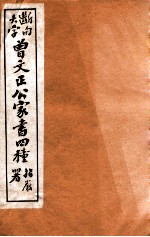 斷句
大字
曾文正公家書四種
署